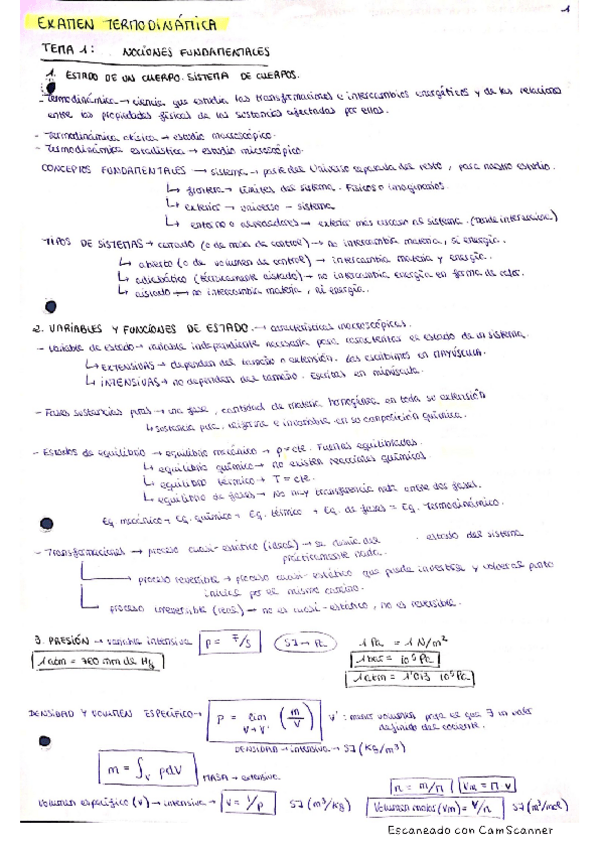 1
EXAMEN TERMODINÁMICA
TEMA 1: NOCIONES FUNDAMENTALES
1. ESTADO DE UN CUERPO. SISTEMA DE CUERPOS.
- Termodinámica → ciencia que estudia las transformaciones e intercambios energéticos y de las relaciones
entre las propiedades físicas de las sustancias afectadas por ellas.
- Termodinámica clásica → estudio macroscópico.
- Termodinámica estadística → estudio microscópico.
CONCEPTOS FUNDAMENTALES → sistema → parte del Universo separada del resto, para nuestro estudio.
↳ frontera → límites del sistema. Físicos o imaginarios.
↳ exterior → universo - sistema
↳ entorno o alrededores → exterior más cercano al sistema. (donde interacciona)
TIPOS DE SISTEMAS → cerrado (o de masa de control) → no intercambia materia, sí energía.
↳ abierto (o de volumen de control) → intercambia materia y energía.
↳ adiabático (térmicamente aislado) → no intercambia energía en forma de calor.
↳ aislado → no intercambia materia, ni energía.
2. VARIABLES Y FUNCIONES DE ESTADO. → características macroscópicas.
- Variable de estado → variable independiente necesaria para caracterizar el estado de un sistema.
↳ EXTENSIVAS → dependen del tamaño o extensión. Las escribimos en MAYÚSCULA.
↳ INTENSIVAS → no dependen del tamaño. Escritas en minúscula.
- Fases sustancias puras → una fase, cantidad de materia homogénea en toda su extensión
↳ sustancia pura, uniforme e invariable en su composición química.
- Estados de equilibrio → equilibrio mecánico → p = cte. Fuerzas equilibradas.
↳ equilibrio químico → no existen reacciones químicas.
↳ equilibrio térmico → T = cte.
↳ equilibrio de fases → No hay transferencia neta entre dos fases.
Eq mecánico + Eq. químico + Eq. térmico + Eq. de fases = Eq. Termodinámico.
- Transformaciones → proceso cuasi-estático (ideal) → estado del sistema
prácticamente nada.
→ proceso reversible → proceso cuasi-estático que puede invertirse y volver al punto
inicial por el mismo camino.
→ proceso irreversible (real) → no es cuasi-estático, no es reversible.
3. PRESIÓN → variable intensiva p = F/S SI → Pa 1 Pa = 1 N/m²
1 atm = 760 mm de Hg 1 bar = 10⁵ Pa
1 atm = 1'013 10⁵ Pa
DENSIDAD Y VOLUMEN ESPECÍFICO → ρ = lim V→V' (m/V) V': menor volumen para el que ∃ un valor
definido del cociente.
DENSIDAD → intensiva → SI (Kg/m³)
m = ∫v ρdV MASA → extensiva.
n = m/M Vm = M·v
Volumen específico (v) → intensiva → v = 1/ρ SI (m³/Kg) Volumen molar (Vm) = V/n SI (m³/mol)
Escaneado con CamScanner